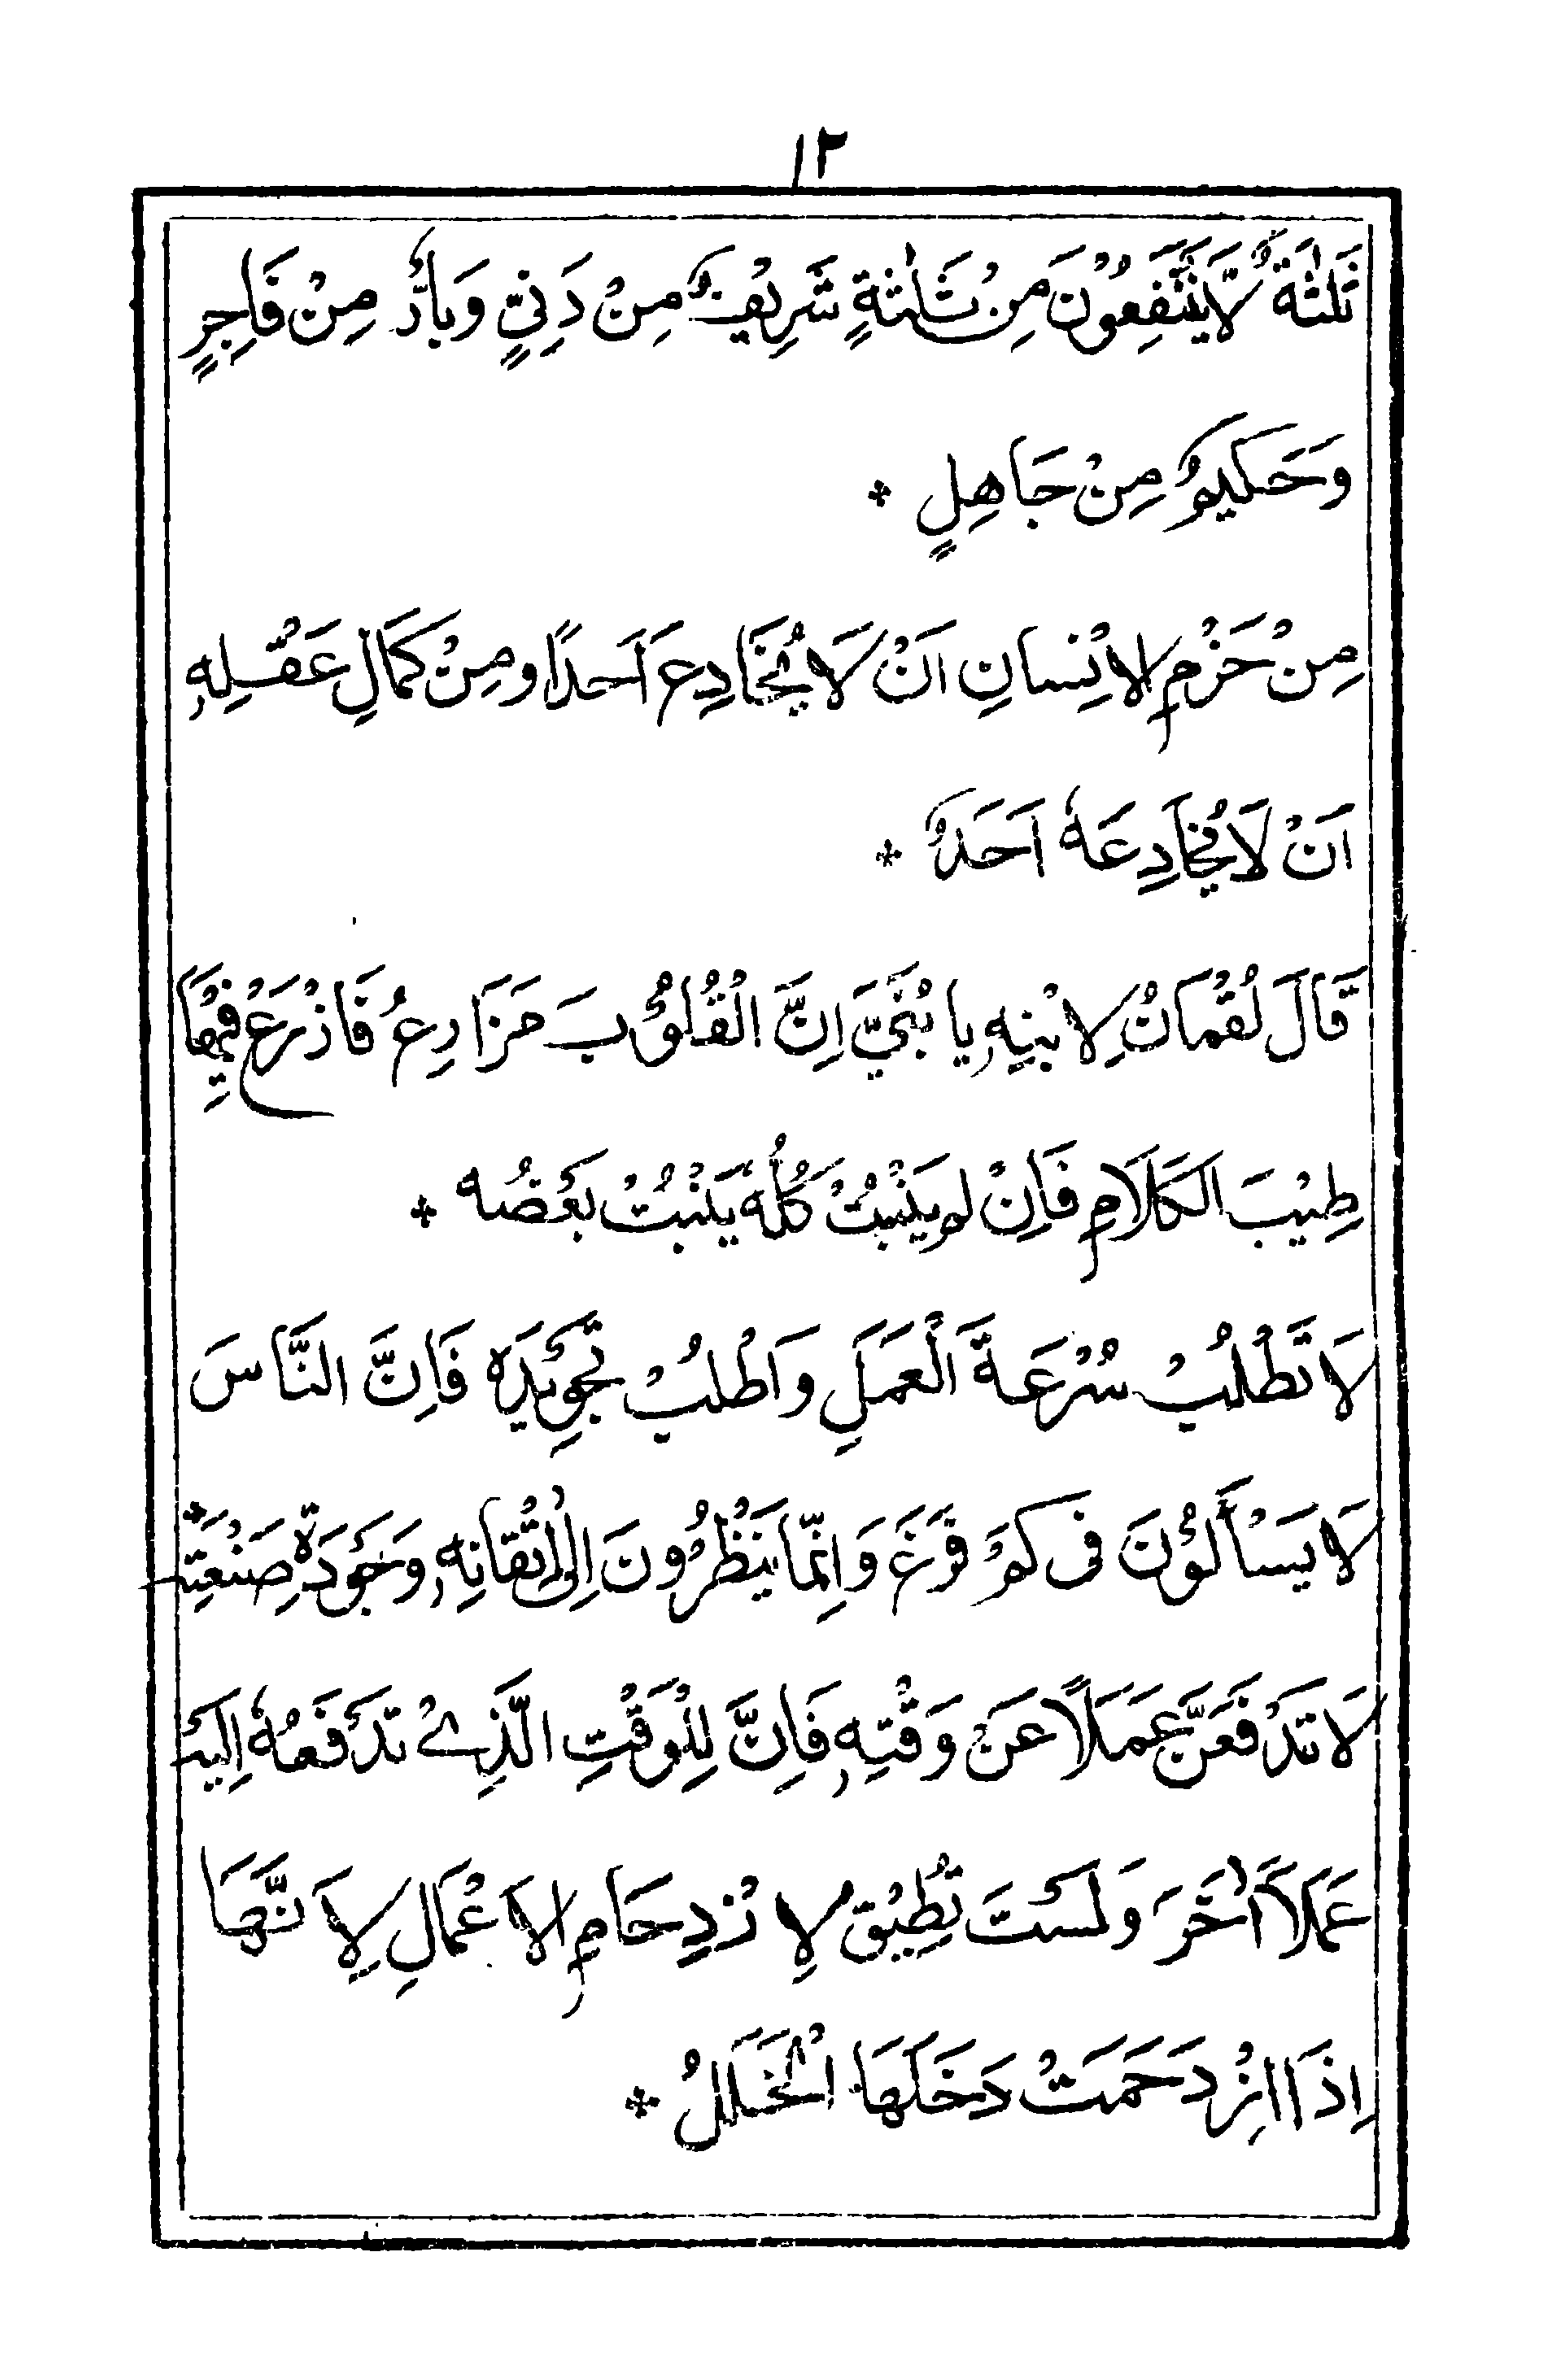 ١٢
ثَلٰثَةٌ لَّا يَنْتَفِعُوْنَ مِنْ ثَلٰثَةٍ شَرِيْفٌ مِنْ دَنِيٍّ وَبارٌّ مِنْ فَاجِرٍ
وَحَكيمٌ مِنْ جَاهِلٍ *
مِنْ حَزْمِ الانِسانِ اَنْ لَا يُخَادِعَ اَحَدًا ومِنْ كَمَالِ عَقْلِهٖ
اَنْ لَا يُخَادِعَهٗ اَحَدٌ *
قَالَ لُقْمَانُ لِابْنِهٖ يا بُنَيَّ اِنَّ الْقُلُوْبَ مَزَارِعُ فَازْرَعْ فِيْهَا
طِيْبَ الكَلَامِ فَاِنْ لم يَنْبُتْ كُلُّهٗ يَنْبُتْ بَعْضُه *
لَا تَطْلُبْ سُرْعَةَ الْعَمَلِ وَاطْلُبْ تَجْوِيْدَه فَاِنَّ النَّاسَ
لَا يَسْأَلُوْنَ فى كمْ فَرَغَ وَاِنّما يَنْظُرُونَ اِلٰى اِتْقانِهٖ وَجَوْدَةِ صَنْعَتِهٖ *
لَا تَدْفَعَنَّ عَمَلًا عَنْ وَقْتِهٖ فَاِنَّ لِلْوَقْتِ الَّذِىْ تَدْفَعُهٗ اِلَيْهِ
عَمَلًا اٰخَرَ وَلَسْتَ تُطِيْقُ لِازْدِحَامِ الاَعْمَالِ لِاَنَّهَا
اِذَا ازْدَحَمَتْ دَخَلَهَا الْخَلَلُ *